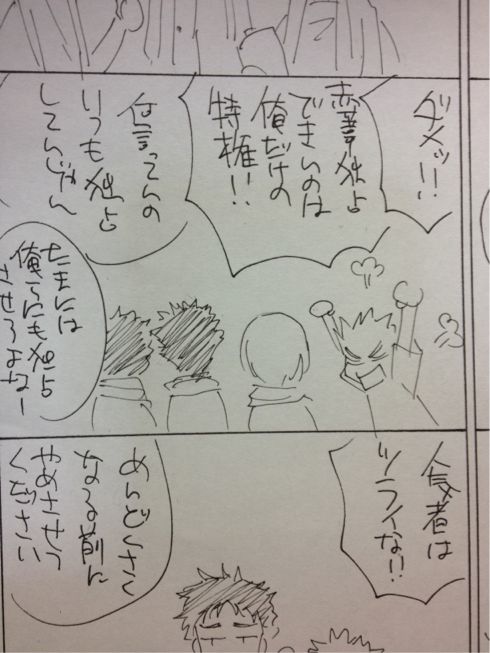 ダメッ!!
赤葦独占
できんのは
俺だけの
特権!!
何言ってんの
いつも独占
してんじゃん
たまには
俺らにも独占
させろよなー
人気者は
ツライな!!
めんどくさく
なる前に
やめさせて
ください